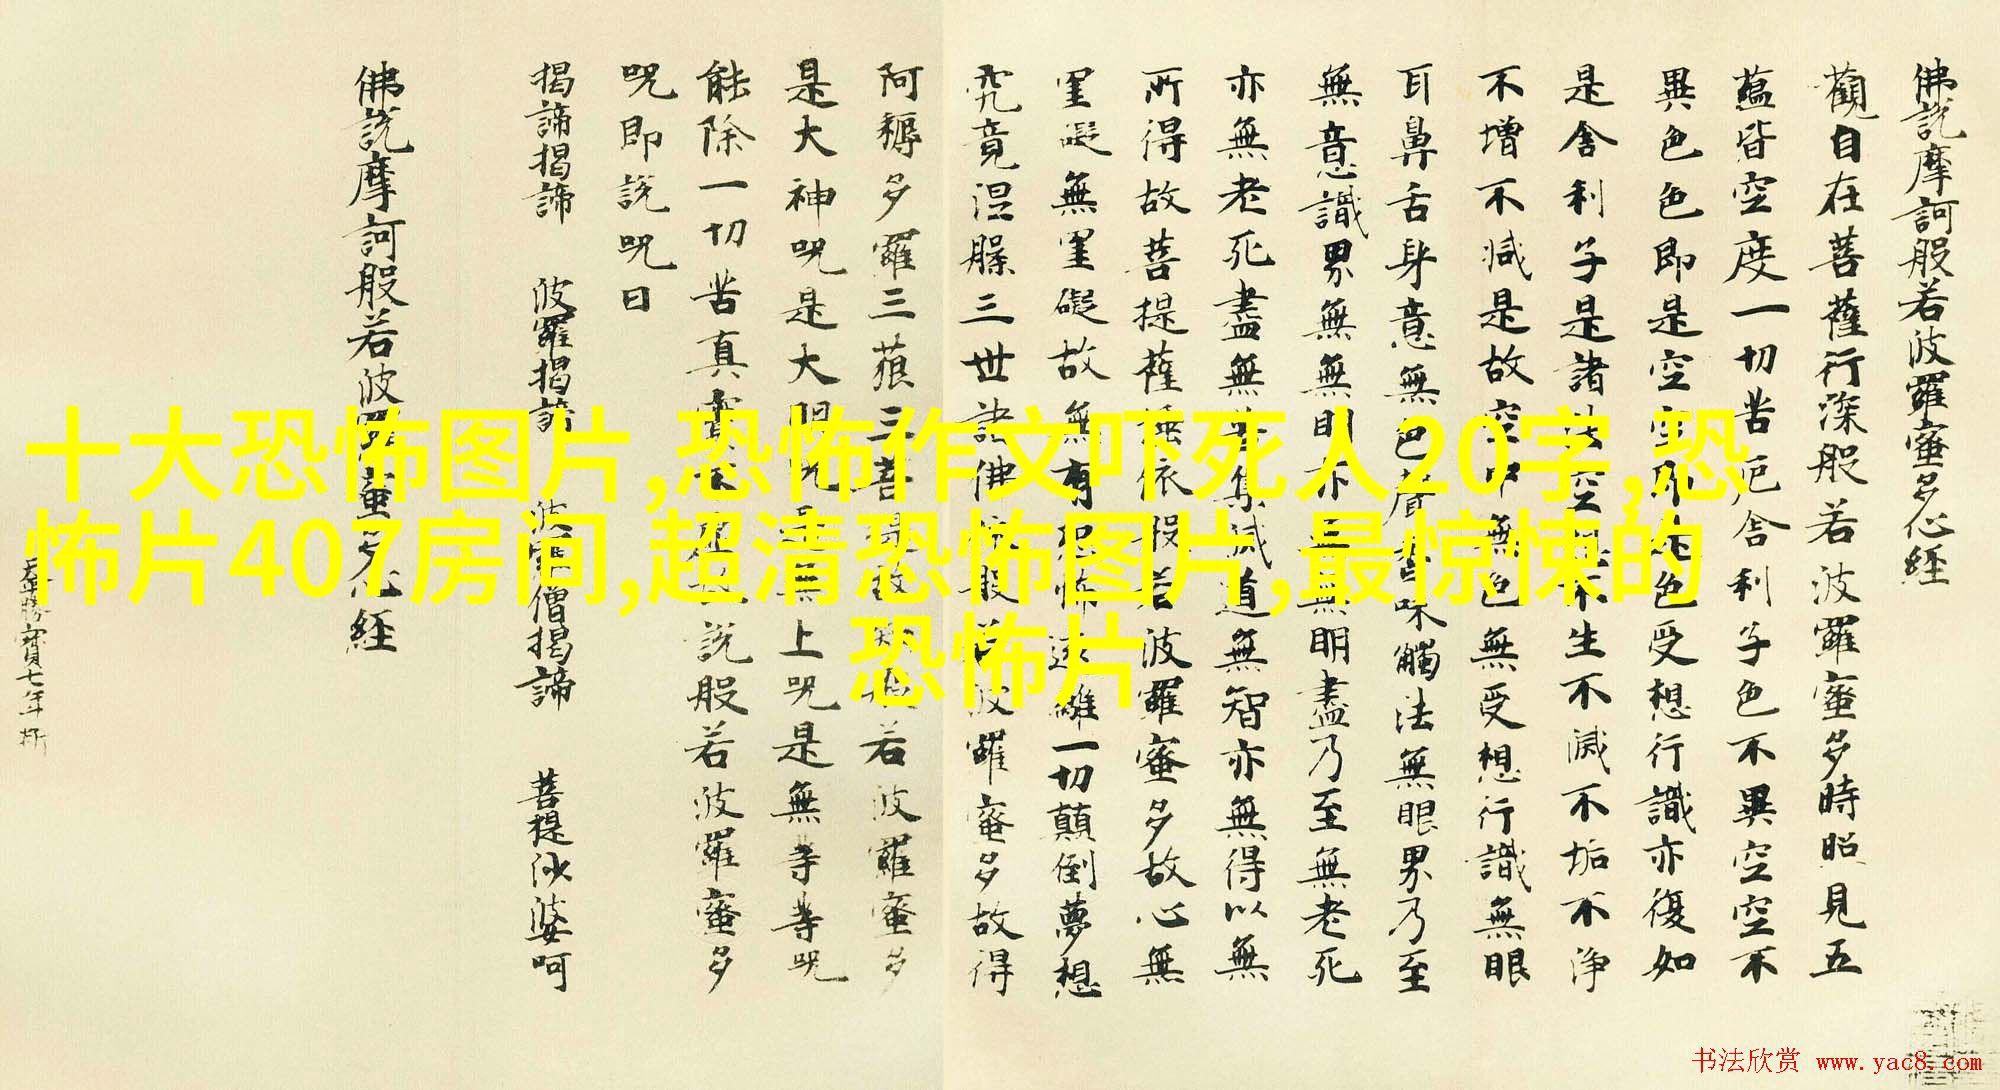 十大恐怖图片,恐怖作文吓死人20字,恐
怖片407房间,超清恐怖图片,最惊悚的
恐怖片
佛說摩訶般若波羅蜜多心経
觀自在菩薩行深般若波羅蜜多時照見五
蘊皆空度一切苦厄舎利子色不異空空不
異色色即是空空即是色受想行識亦復如
是舎利子是諸法空相不生不滅不垢不淨
不增不減是故空中無色無受想行識無眼
耳鼻舌身意無色聲香味觸法無眼界乃至
無意識界無無明亦無無明盡乃至無老死
亦無老死盡無苦集滅道無智亦無得以無
所得故菩提薩埵依般若波羅蜜多故心無
罣礙無罣礙故無有恐怖遠離一切顛倒夢想
究竟涅槃三世諸佛依般若波羅蜜多故得
阿耨多羅三藐三菩提故知般若波羅蜜多
是大神呪是大明呪是無上呪是無等等呪
能除一切苦真實不虚故說般若波羅蜜多
呪即說呪曰
揭諦揭諦 波羅揭諦 波羅僧揭諦 菩提沙婆呵
佛說摩訶般若波羅蜜多心経
勝寶七年
书法欣赏 www.yac8.com